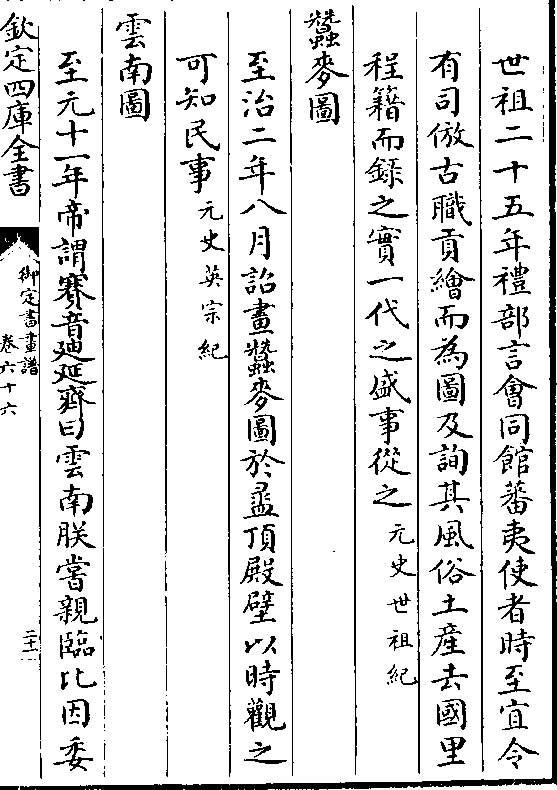 世祖二十五年禮部言會同館蕃夷使者時至宜令
有司倣古職貢繪而為圖及詢其風俗土產去國里
程籍而錄之實一代之盛事從之元史世祖紀
蠶麥圖
至治二年八月詔畫蠶麥圖於盝頂殿壁以時觀之
可知民事元史英宗紀
雲南圖
至元十一年帝謂賽音迪延齊曰雲南朕嘗親臨比因委
欽定四庫全書
御定書畫譜
卷六十六
二十一